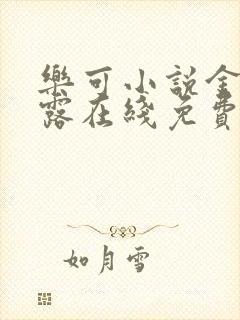 樂可小說金
露在綫免費
如月雪